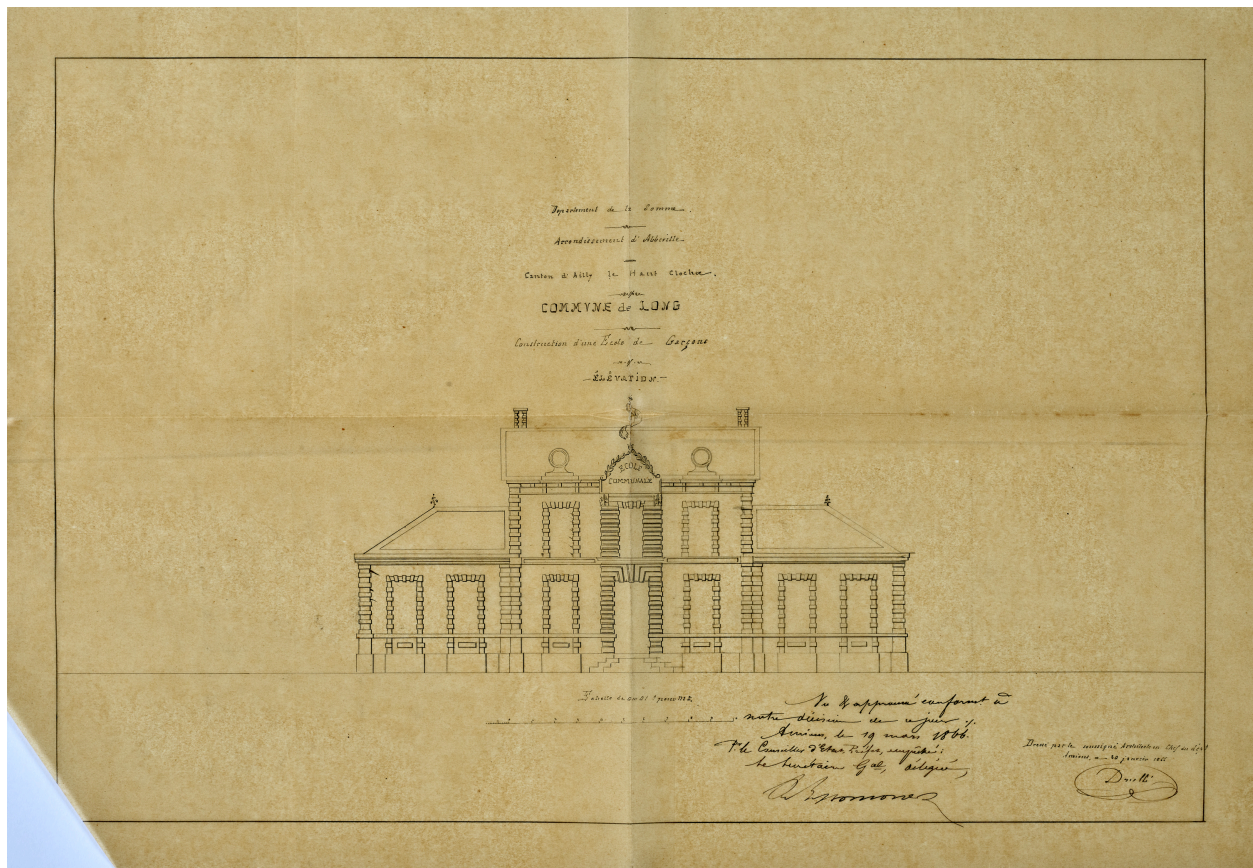 Département de la Somme.
Arrondissement d'Abbeville
Canton d'Ailly le Haut Clocher.
COMMVNE de LONG
Construction d'une École de Garçons
ÉLÉVATION
ÉCOLE
COMMUNALE
Échelle de
Vu & approuvé conformt à
notre décision de ce jour
Amiens, le 19 mars 1866.
Pr le Conseiller d'Etat, Préfet, empêché:
le Secrétaire Gal, délégué,
Dressé par le soussigné Architecte en Chef du dépt
Amiens, le 20 janvier